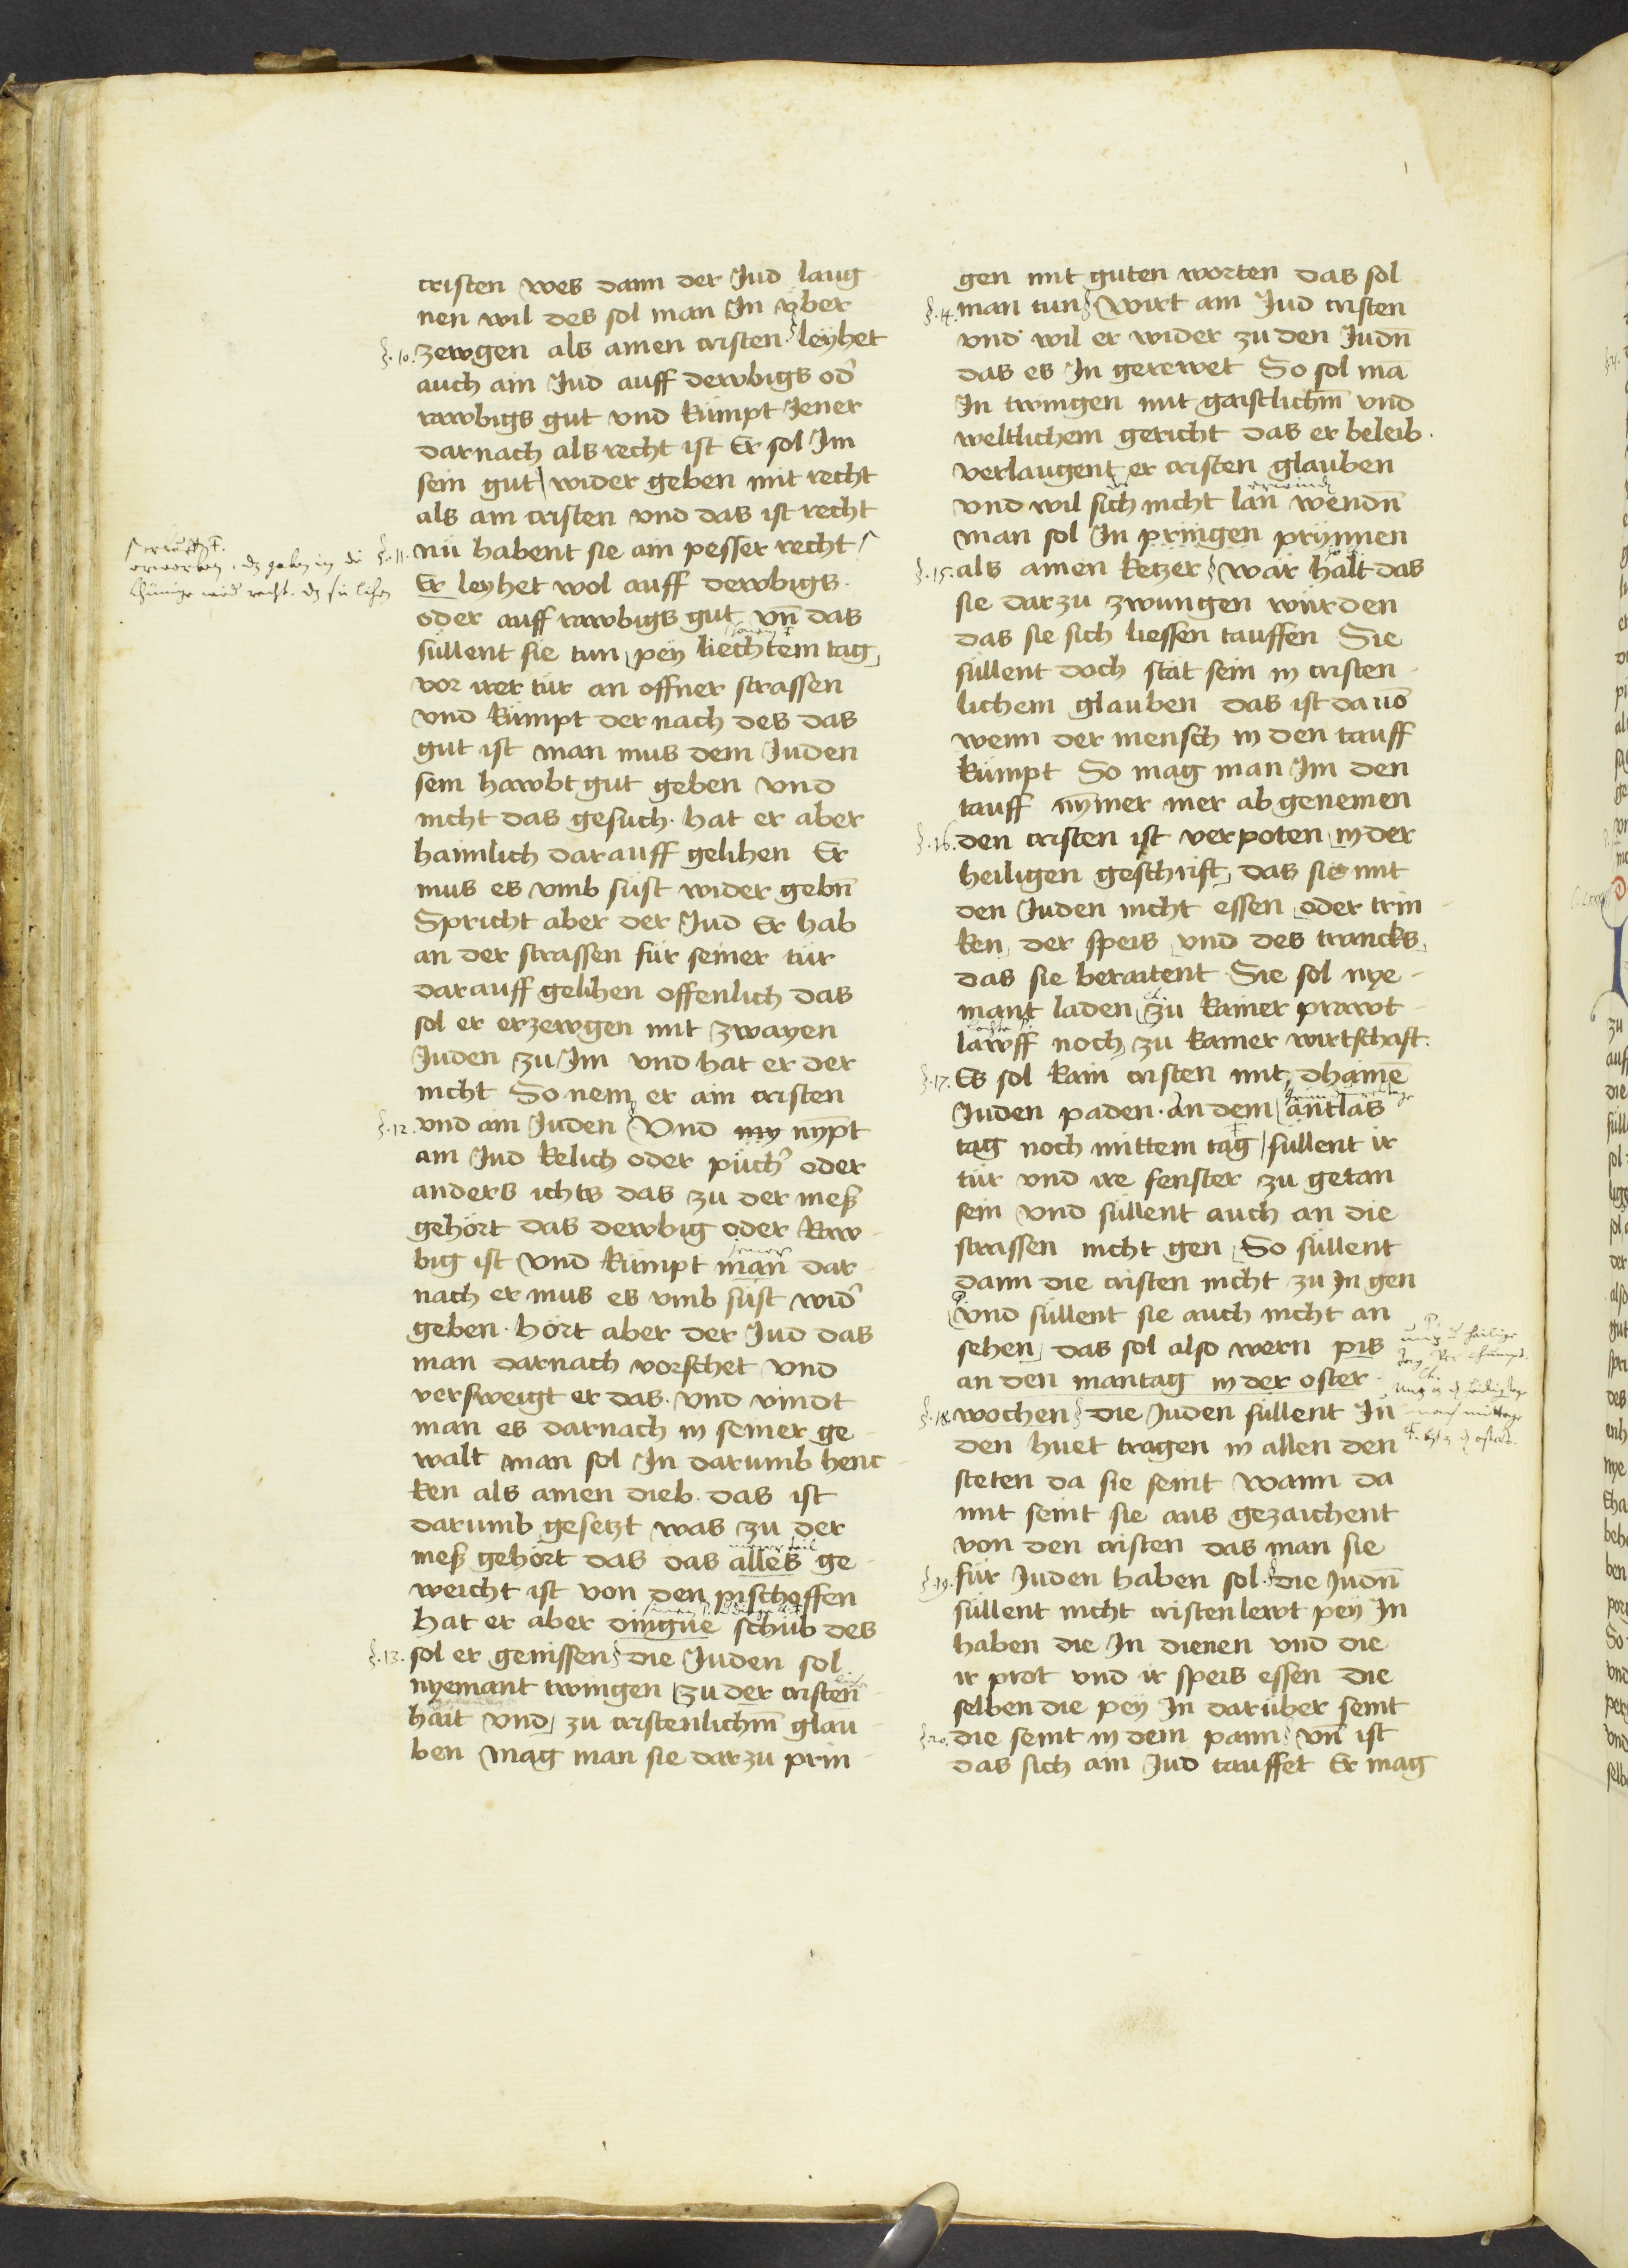 cristen wes dann der Jud laug
nen wil des sol man In vber
§.10. zewgen als ainen cristen. leyhet
auch ain Jud auff dewbigs od̉
rawbigs gut vnd kümpt Jener
darnach als recht ist Er sol Im
sein gut wider geben mit recht
als ain cristen vnd das ist recht
§.11. nü habent sie ain pesser recht
Er leyhet wol auff dewbigs.
oder auff rawbigs gut vn̄ das
süllent sie tun pey liechtem tag
vor irer tür an offner strassen
vnd kümpt der nach des das
gut ist man mus dem Juden
sein hawbt gut geben vnd
nicht das gesuch. hat er aber
haimlich darauff gelihen Er
mus es vmb süst wider gebn̄
Spricht aber der Jud Er hab
an der strassen für seiner tür
darauff gelihen offenlich das
sol er erzewgen mit zwayen
Juden zu Im vnd hat er der
nicht So nem er ain cristen
§.12. vnd ain Juden Vnd my nypt
ain Jud kelich oder püch̉ oder
anders ichts das zu der meß
gehört das dewbig oder Raw
big ist vnd kümpt man dar
nach er mus es vmb süst wid̉
geben. hört aber der Jud das
man darnach vorschet vnd
versweigt er das. vnd vindt
man es darnach in seiner ge
walt man sol In darumb henc
ken als ainen dieb. das ist
darumb gesetzt was zu der
meß gehört das das alles ge
weicht ist von den pischoffen
hat er aber dingüe schüb des
§.13. sol er genissen die Juden sol
nyemant twingen zu der cristen
hait vnd zu cristenlichm̄ glau
ben mag man sie darzu prin
gen mit guten worten das sol
§.14. man tun Wirt ain Jud cristen
vnd wil er wider zu den Judn̄
das es In gerewet So sol mā
In twingen mit gaistlichm̄ vnd
weltlichem gericht das er beleib.
verlaugent er cristen glauben
vnd wil sich nicht lan wendn̄
man sol In pringen prynnen
§.15. als ainen ketzer wär halt das
sie darzu zwungen würden
das sie sich liessen tauffen Sie
süllent doch stät sein in cristen
lichem glauben das ist dauō
wenn der mensch in den tauff
kümpt So mag man Im den
tauff nymer mer ab genemen
§.16. den cristen ist verpoten in der
heiligen geschrift das sie mit
den Juden nicht essen oder trin
ken der speis vnd des trancks
das sie beraitent Sie sol nye
mant laden zu kainer prawt
lawff noch zu kainer wirtschaft.
§.17. Es sol kain cristen mit dhaine
Juden paden. an dem äntlas
tag noch mittem tag süllent ir
tür vnd ire fenster zu getan
sein vnd süllent auch an die
strassen nicht gen So süllent
dann die cristen nicht zu In gen
vnd süllent sie auch nicht an
sehen das sol also wern pis
an den mantag in der oster
§.18. wochen die Juden süllent In
den huet tragen in allen den
steten da sie seint wann da
mit seint sie aus gezaichent
von den cristen das man sie
§.19. für Juden haben sol. die Judn̄
süllent nicht cristenlewt pey In
haben die In dienen vnd die
ir prot vnd ir speis essen die
selben die pey In darüber seint
§.20. die seint in dem pann vn̄ ist
das sich ain Jud tauffet Er mag